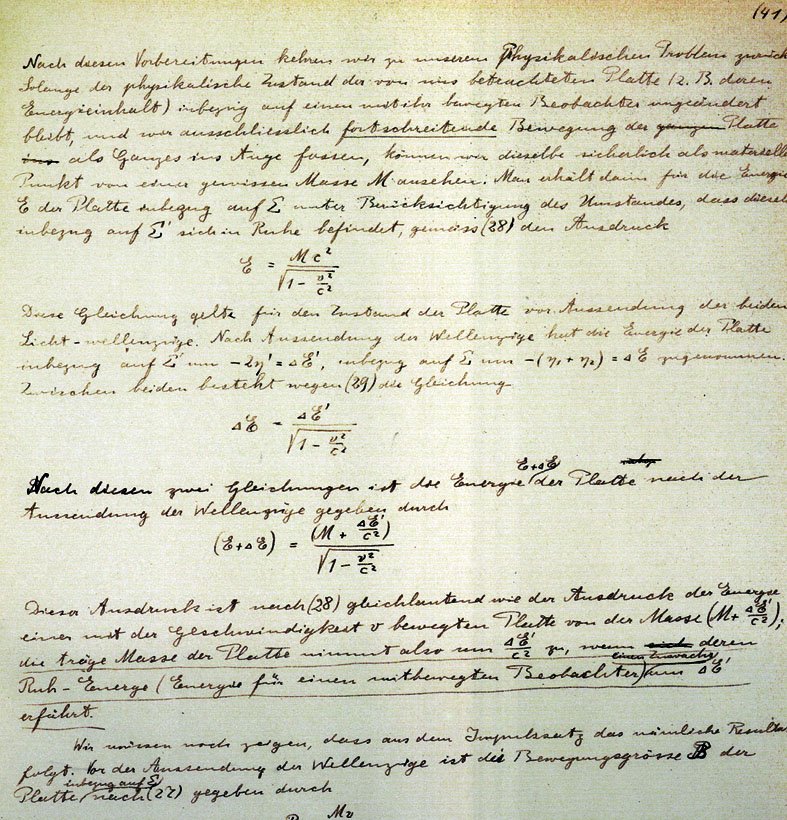 (41)
Nach diesen Vorbereitungen kehren wir zu unserem Physikalischen Problem zurück
Solange der physikalische Zustand der von uns betrachteten Platte (z. B. deren
Energieinhalt) inbezug auf einen mit ihr bewegten Beobachter ungeändert
bleibt, und wir ausschliesslich fortschreitende Bewegung der ganzen Platte
als Ganzes ins Auge fassen, können wir dieselbe sicherlich als materielle
Punkt von einer gewissen Masse M ansehen. Man erhält dann für die Energie
E der Platte inbezug auf Σ unter Berücksichtigung des Umstandes, dass dieselb
inbezug auf Σ' sich in Ruhe befindet, gemäss (28) den Ausdruck
E = Mc² / √(1 - v²/c²)
Diese Gleichung gelte für den Zustand der Platte vor Aussendung der beiden
Licht-wellenzüge. Nach Aussendung der Wellenzüge hat die Energie der Platte
inbezug auf Σ' um -2η' = ΔE', inbezug auf Σ um -(η₁ + η₂) = ΔE zugenommen.
Zwischen beiden besteht wegen (29) die Gleichung
ΔE = ΔE' / √(1 - v²/c²)
Nach diesen zwei Gleichungen ist die Energie E+ΔE der Platte nach der
Aussendung der Wellenzüge gegeben durch
(E+ΔE) = (M + ΔE'/c²) / √(1 - v²/c²)
Dieser Ausdruck ist nach (28) gleichlautend wie der Ausdruck der Energie
einer mit der Geschwindigkeit v bewegten Platte von der Masse (M + ΔE'/c²);
die träge Masse der Platte nimmt also um ΔE'/c² zu, wenn deren
Ruh-Energie (Energie für einen mitbewegten Beobachter) einen Zuwachs um ΔE'
erfährt.
Wir müssen noch zeigen, dass aus dem Impulssatz das nämliche Resulta
folgt. Vor der Aussendung der Wellenzüge ist die Bewegungsgrösse B der
Platte inbezug auf Σ nach (27) gegeben durch
Mv